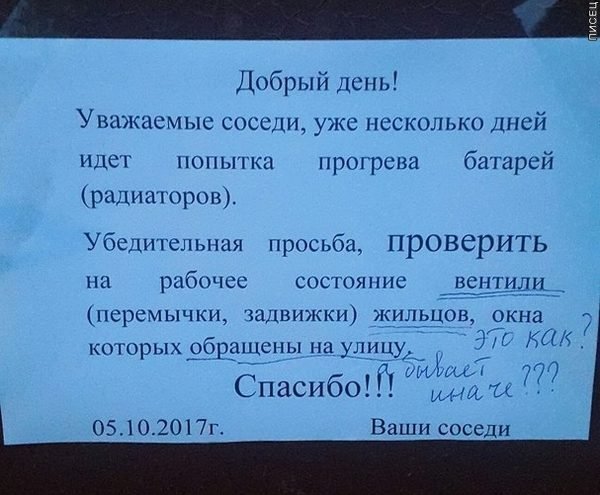 Добрый день!
Уважаемые соседи, уже несколько дней
идет попытка прогрева батарей
(радиаторов).
Убедительная просьба, проверить
на рабочее состояние вентили
(перемычки, задвижки) жильцов, окна
которых обращены на улицу.
это как?
а бывает
иначе???
Спасибо!!!
05.10.2017г.
Ваши соседи
ПИСЕЦ